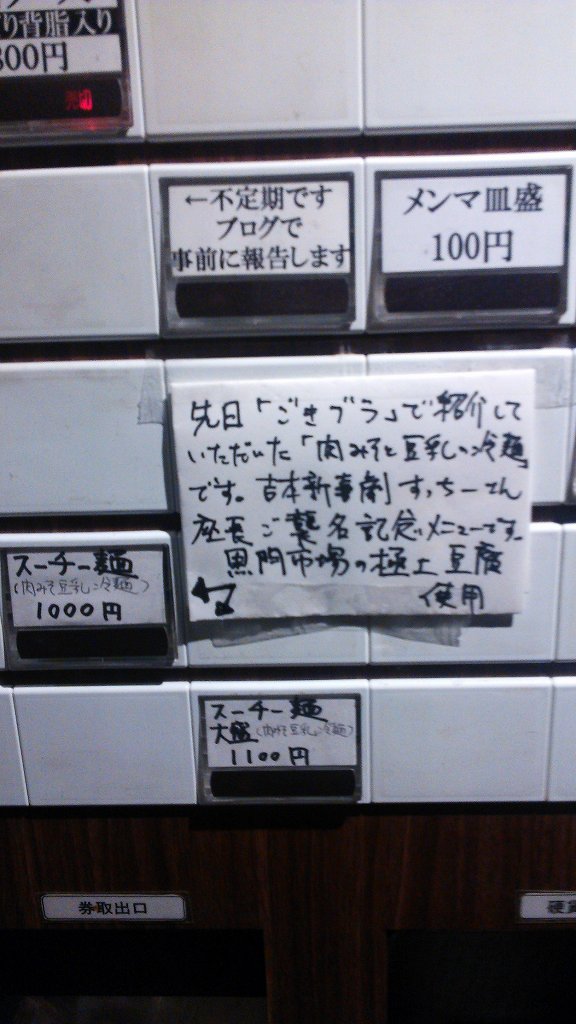 り背脂入り
800円
売切
←不定期です
ブログで
事前に報告します
メンマ皿盛
100円
先日「ごきブラ」で紹介して
いただいた「肉みそと豆乳の冷麺」
です。吉本新喜劇すっちーさん
座長ご襲名記念メニューです。
黒門市場の極上豆腐
使用
スーチー麺
(肉みそ豆乳冷麺)
1000円
スーチー麺
大盛(肉みそ豆乳冷麺)
1100円
券取出口
硬貨